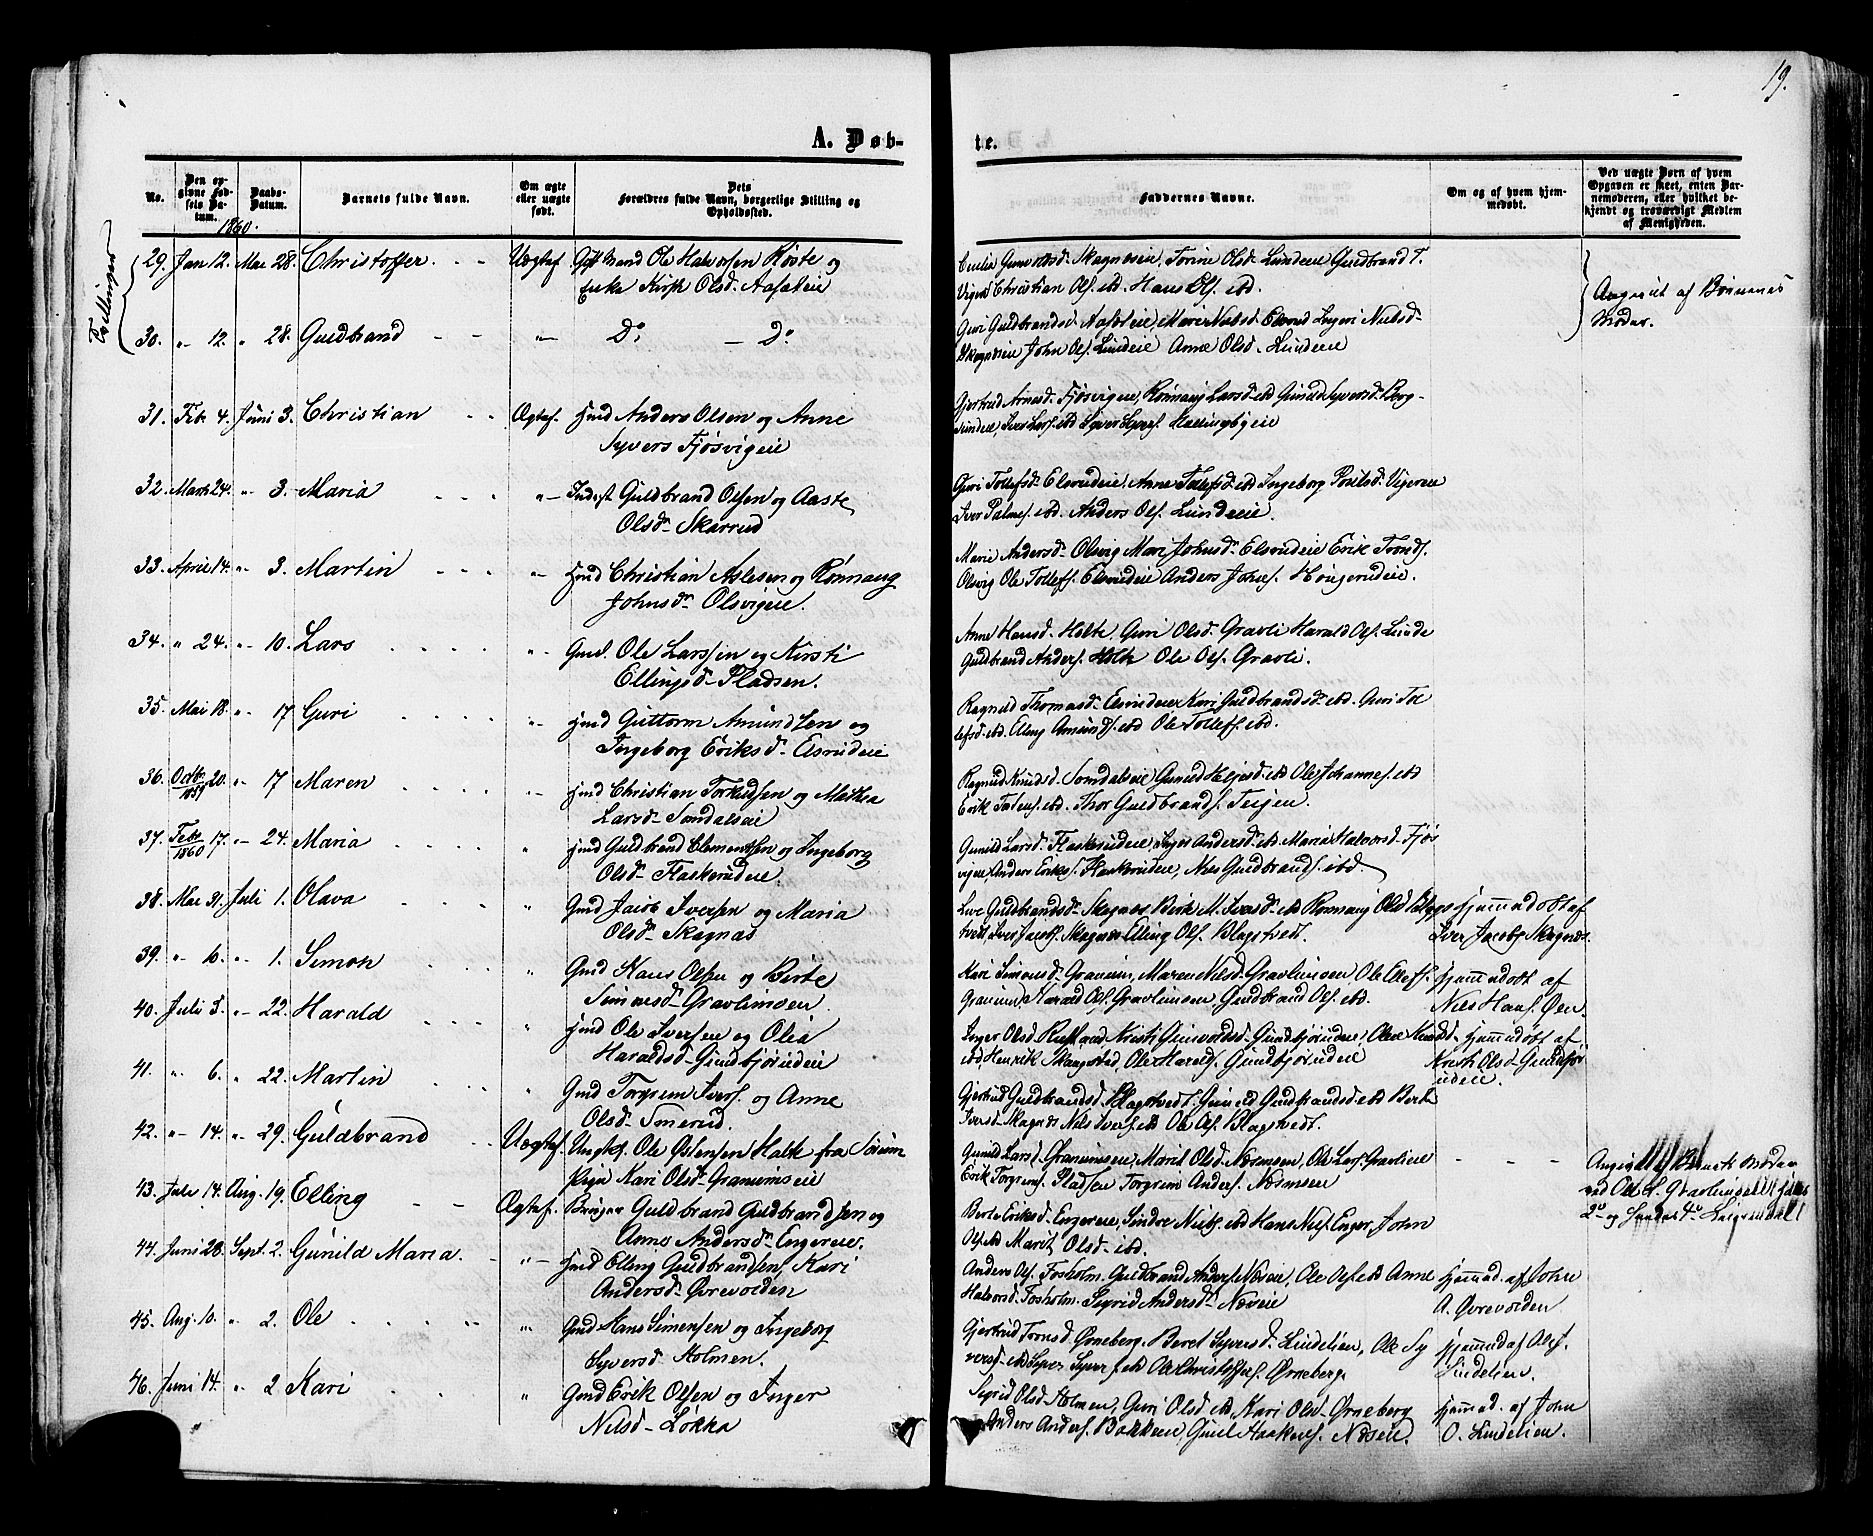 19.
A. Døb-
te.
No.
Den opgivne Fødsels Datum.
Daabs-Datum.
Barnets fulde Navn.
Om ægte eller uægte født.
Dets Forældres fulde Navn, borgerlige Stilling og Opholdssted.
Faddernes Navne.
Om og af hvem hjemmedøbt.
Ved uægte Børn af hvem Opgaven er skeet, enten Barnemoderen, eller hvilket bekjendt og troværdigt Medlem af Menigheden.
1860.
Tvillinger
29. Jan 12. Mai 28. Christoffer Uægtef. Ole Halvorsen Røste og
Enke Olsd. Aasateie
Skagnæseie, Torine Olsd. Lundeie Guldbrand T.
Christian Ols. ibd. Hans Ols. ibd.
Angivet af Børnenes
Moder.
30. " 12. " 28. Guldbrand " Do. - Do.
Guri Guldbrandsd. Mari Nielsd. Elsrud Nielsd.
Skagnæseie John Ols. Lundeie Anne Olsd. Lundeie
31. Feb. 4. Juni 3. Christian Ægtef. Hmd Anders Olsen og Anne
Syvers Fjøsvigeie
Gjertrud Arnesd. Fjøsvigeie, Rønnaug Larsd. ibd Gunild Syversd. Berg
Iver Lars. ibd Syver Syvers. Hallingbyeie
32. Marts 24. " 3. Maria " Inderst Guldbrand Olsen og Aaste
Olsd. Skarrud
Guri Tollefsd. Elsrudeie, Anne Tollefsd. ibd Ingeborg Vigereie
Iver Palmes. ibd. Anders Ols. Lundeie.
33. April 14. " 3. Martin " Hmd Christian Aslesen og Rønnaug
Johnsd. Olsvigeie.
Marie Andersd. Olsvig Mari Johnsd. Elsrudeie Erik Tronds.
Olsvig Ole Tollefs. Elsrudeie Anders Johns. Hougerudeie.
34. " 24. " 10. Lars " Gmd. Ole Larssen og Kirsti
Ellingsd. Pladsen.
Anne Hansd. Holte, Guri Olsd. Gravli Harald Ols. Lunde
Guldbrand Anders. Holte Ole Ols. Gravli.
35. Mai 18. " 17 Guri " Hmd Guttorm Amundsen og
Ingeborg Eriksd. Elsrudeie
Ragnild Thomasd. Elsrudeie Kari Guldbrandsd. ibd. Guri Tol
lefsd. ibd. Elling Amunds. ibd Ole Tollefs. ibd.
36. Octbr. 20. 1859 " 17 Maren " Hmd Christian Torkildsen og Mathea
Larsd. Somdalseie
Ragnild Knudsd. Somdalseie Gunild ibd Ole Johannes. ibd
Erik ibd. Thor Guldbrands. Teigen.
37. Febr. 17. 1860 " 24. Maria " Hmd Guldbrand Clementsen og Ingeborg
Olsd. Flaskerudeie
Gunild Larsd. Flaskerudeie, Inger Andersd. ibd Maria Halvorsd. Fjøs
vigeie, Anders Eriks. Flaskerudeie, Niels Guldbrands. ibd.
38. Mai 31. Juli 1. Olava " Gmd Jacob Iversen og Maria
Olsd. Skagnæs
Live Guldbrandsd. Skagnæs Birthe M. Iversd. ibd Rønnaug Olsd. Blags
tvedt Iver Jacobs. Skagnæs Elling Ols. Blagstvedt.
Hjemmedøbt af
Iver Jacobs. Skagnæs.
39. " 10. " 1. Simon " Gmd Hans Olsen og Birte
Simensd. Gravlimoen
Kari Simensd. Granum, Maren Nielsd. Gravlimoen, Ole Ellefs.
Granum, Harald Ols. Gravlimoen, Guldbrand Ols. ibd.
Hjemmedøbt af
Niels Hans. Øen.
40. Juli 3. " 22. Harald " Hmd Ole Iversen og Olia
Haraldsd. Guldbjørudeie
Inger Olsd. Kirsti Gunvoldsd.
ibd, Henrik Ole Haralds.
Hjemmedøbt af
Kirsti Olsd.
41. " 6. " 22. Martin " Gmd Torgrim Ivers. og Anne
Olsd. Smerud.
Gjertrud Guldbrandsd. Blagstvedt, Gunild Guldbrandsd. ibd Berte
Iversd. Skagnæs Niels Ivers. ibd Ole Ols. Blagstvedt.
42. " 14. " 29. Guldbrand Uægtef. Ungkf. Ole Østensen Holte fra
Pige Kari Olsd. Granumseie
Gunild Larsd. Granumseie, Marit Olsd. Næsmoen, Ole Lars. Gravlieie
Erik Torgrims. Pladsen Torgrim Anders. Næsmoen
Moder
43. Juli 14. Aug. 19. Elling Ægtef. Bruger Guldbrand Guldbrandsen og
Anne Andersd. Engereie.
Berte Eriksd. Engereie, Sindre Niels. ibd Hans Niels. Enger, John
Ols. ibd Marit Olsd. ibd.
44. Juni 28. Sept. 2. Gunild Maria " Hmd Elling Guldbrandsen, Kari
Andersd. Øvrevolden
Anders Ols. Fosholm. Guldbrand Anders. Næseie, Ole Ols. ibd Anne
Halvorsd. Fosholm. Sigrid Andersd. Næseie
Hjemmd. af John
A. Øvrevolden
45. Aug. 10. " 2. Ole " Gmd Hans Simensen og Ingeborg
Syversd. Holmen.
Gjertrud Tronsd. Ørneberg. Beret Syversd. Lindelien, Ole Sy
vers. ibd Syver Syvers. ibd Ole Christoffers. Ørneberg.
Hjemmd af Ole S.
Lindelien.
46. Juni 14. " 2. Kari " Gmd Erik Olsen og Inger
Nilsd. Løkka
Sigrid Olsd. Holmen, Guri Olsd. ibd, Kari Olsd. Ørneberg
Anders Anders. Bakkeie, Haakens. Næseie.
Hjemmd. af John
O. Lindelien.